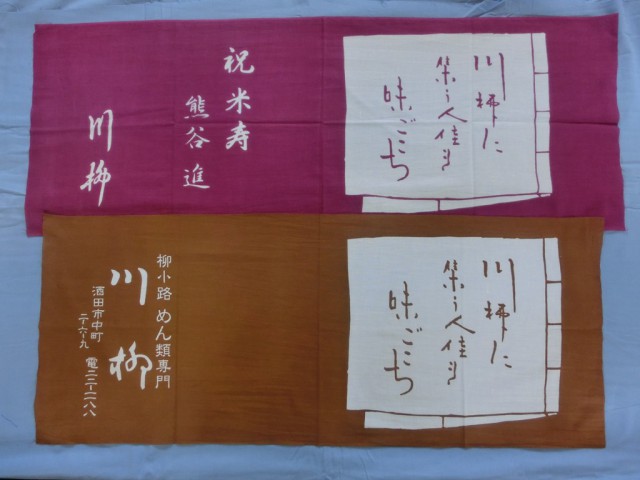 川柳に
集う人佳き
味ごこち
祝米寿
熊谷進
川柳
川柳に
集う人佳き
味ごこち
柳小路 めん類専門
川柳
酒田市中町
二-六-九 電二二-二一八八